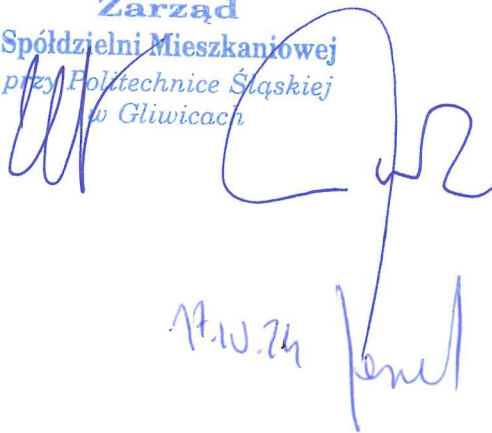 Zarząd
Spółdzielni Mieszkaniowej
przy Politechnice Śląskiej
w Gliwicach
17.IV.24